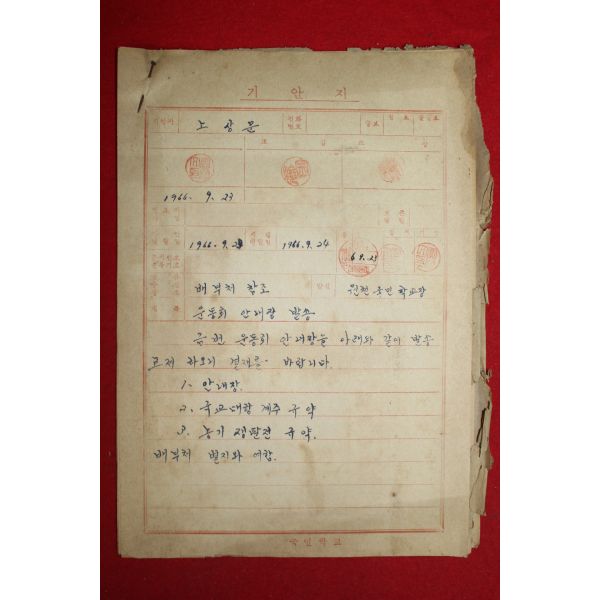 기안지
기안자 노상문 전화번호
1966. 9. 23
1966. 9. 23 1966. 9. 24 6 9. 23
배부처 참조 발신 원천국민학교장
제목 운동회 안내장 발송
금번 운동회 안내장을 아래와 같이 발송
코저 하오니 결재를 바랍니다.
1. 안내장.
2. 국교대항 계주 규약
3. 농기 쟁탈전 규약.
배부처 별지와 여함.
국민학교